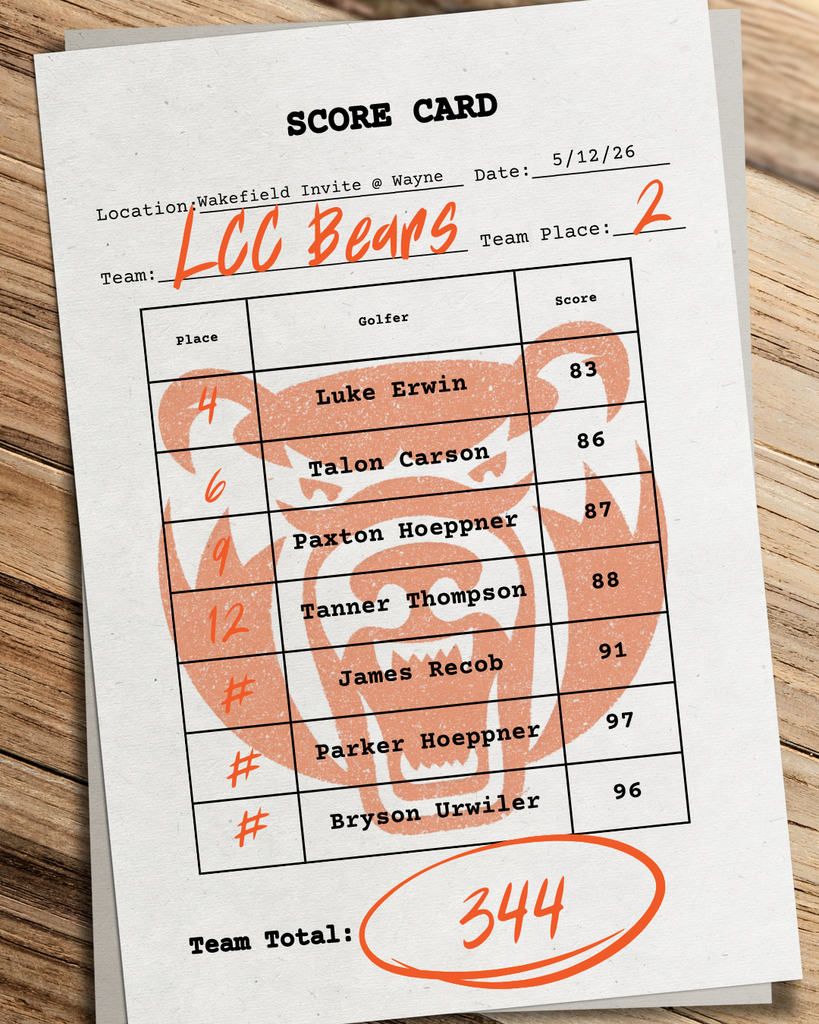 SCORE CARD
Location: Wakefield Invite @ Wayne Date: 5/12/26
Team: LCC Bears Team Place: 2
Place Golfer Score
4 Luke Erwin 83
6 Talon Carson 86
9 Paxton Hoeppner 87
12 Tanner Thompson 88
# James Recob 91
# Parker Hoeppner 97
# Bryson Urwiler 96
Team Total: 344